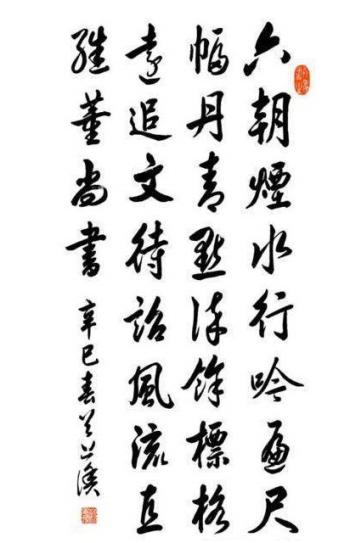 六朝煙水行吟遍尺
幅丹青點染餘標格
遠追文待詔風流直
繼董尚書
辛巳春